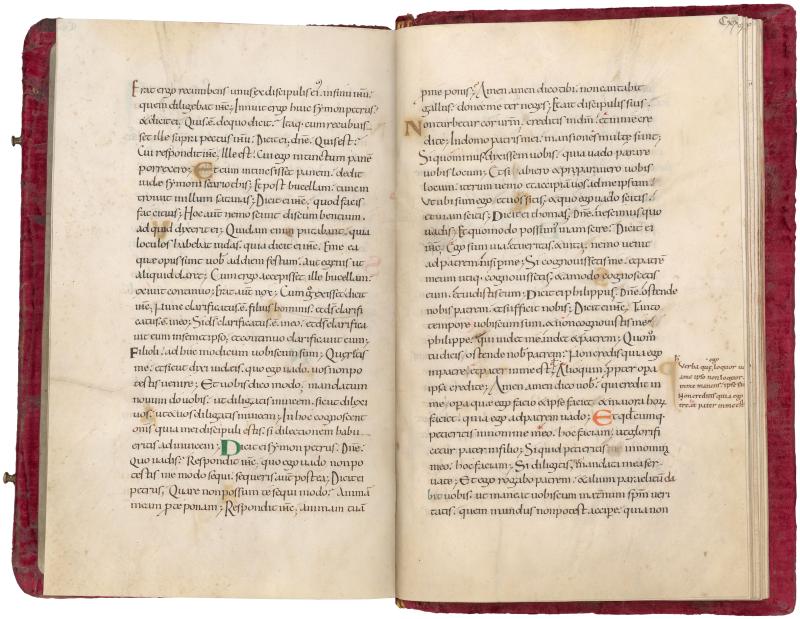 Erat ergo recumbens unus ex discipulis ei' insinu ihu
quem diligebat ihc; Innuit ergo huic symon petrus
& dicit ei; Quis e de quo dicit; Itaq: cum recubuis
set ille supra pectus ihu; Dicit ei; dne; Quis est;
Cui respondit ihc; Ille est; Cui ego intinctum pane
porrexero; Et cum intinxisset panem; dedit
iudę symoni scariothis; & post bucellam; tunc in
troiuit in illum satanas; Dicit ei ihc; quod facis
fac citius; Hoc aut nemo sciuit discumbentium;
ad quid dixerit ei; Quidam enim putabant; quia
loculos habebat iudas; quia dicit ei ihc; Eme ea
que opus sunt uob ad diem festum; aut egenis ut
aliquid daret; Cum ergo accepisset ille bucellam;
exiuit continuo; Erat aut nox; Cum g exisset dicit
ihc; Nunc clarificatus e filius hominis; et ds clarifi
catus e in eo; Si ds clarificatus e in eo; et ds clarifica
uit eum in semetipso; et continuo clarificauit eum;
Filioli; adhuc modicum uobiscum sum; Queritis
me; et sicut dixi iudeis; quo ego uado; uos non po
testis uenire; Et uobis dico modo; mandatum
nouum do uobis; ut diligatis inuicem; sicut dilexi
uos; ut et uos diligatis inuicem; In hoc cognoscent
oms quia mei discipuli estis; si dilectionem habu
eritis adinuicem; Dicit ei symon petrus; Dne;
Quo uadis; Respondit ihc; quo ego uado non po
testis me modo sequi; sequeris aut postea; Dicit ei
petrus; Quare non possum te sequi modo; Animā
meam p te ponam; Respondit ihc; animam tuā
p me ponis; Amen amen dico tibi; non cantabit
gallus; donec me ter neges; Et ait discipulis suis;
Non turbetur cor urm; creditis in dm; et in me cre
dite; In domo patris mei; mansiones multę sunt;
Si quo minus dixissem uobis; quia uado parare
uobis locum; Et si abiero & preparauero uobis
locum; iterum uenio et accipiā uos; ad me ipsum
Ut ubi sum ego; et uos sitis; & quo ego uado scitis;
et uiam scitis; Dicit ei thomas; Dne; nescimus quo
uadis; Et quomodo possum' uiam scire; Dicit ei
ihc; Ego sum uia; et ueritas; et uita; nemo uenit
ad patrem nisi p me; Si cognouissetis me; et patrē
meum utiq: cognouissetis; & amodo cognoscetis
eum; et uidistis eum; Dicit ei philippus; Dne; ostende
nobis patrem; et sufficit nobis; Dicit ei ihc; Tanto
tempore uobiscum sum; et non cognouistis me;
philippe; qui uidet me; uidet & patrem; Quom
tu dicis; ostende nob patrem; Non credis quia ego
in patre; et pater in me est; Alioquin; propter opera
ipsa credite; Amen amen dico uob; qui credit in
me; opera que ego facio & ipse faciet; & maiora horū
faciet; quia ego ad patrem uado; Et qdcumq:
petieritis in nomine meo; hoc faciam; ut glorifi
cetur pater in filio; Si quid petieritis in nomine
meo; hoc faciam; Si diligitis; mandata mea ser
uate; Et ego rogabo patrem; & alium paraclitū da
bit uobis; ut maneat uobiscum in aeternum spm ueri
tatis; quem mundus non potest accipe; quia non
ego
Verba que loquor
a me ipso non loquor
in me manens; ipse
Non creditis quia ego
& pater in me est